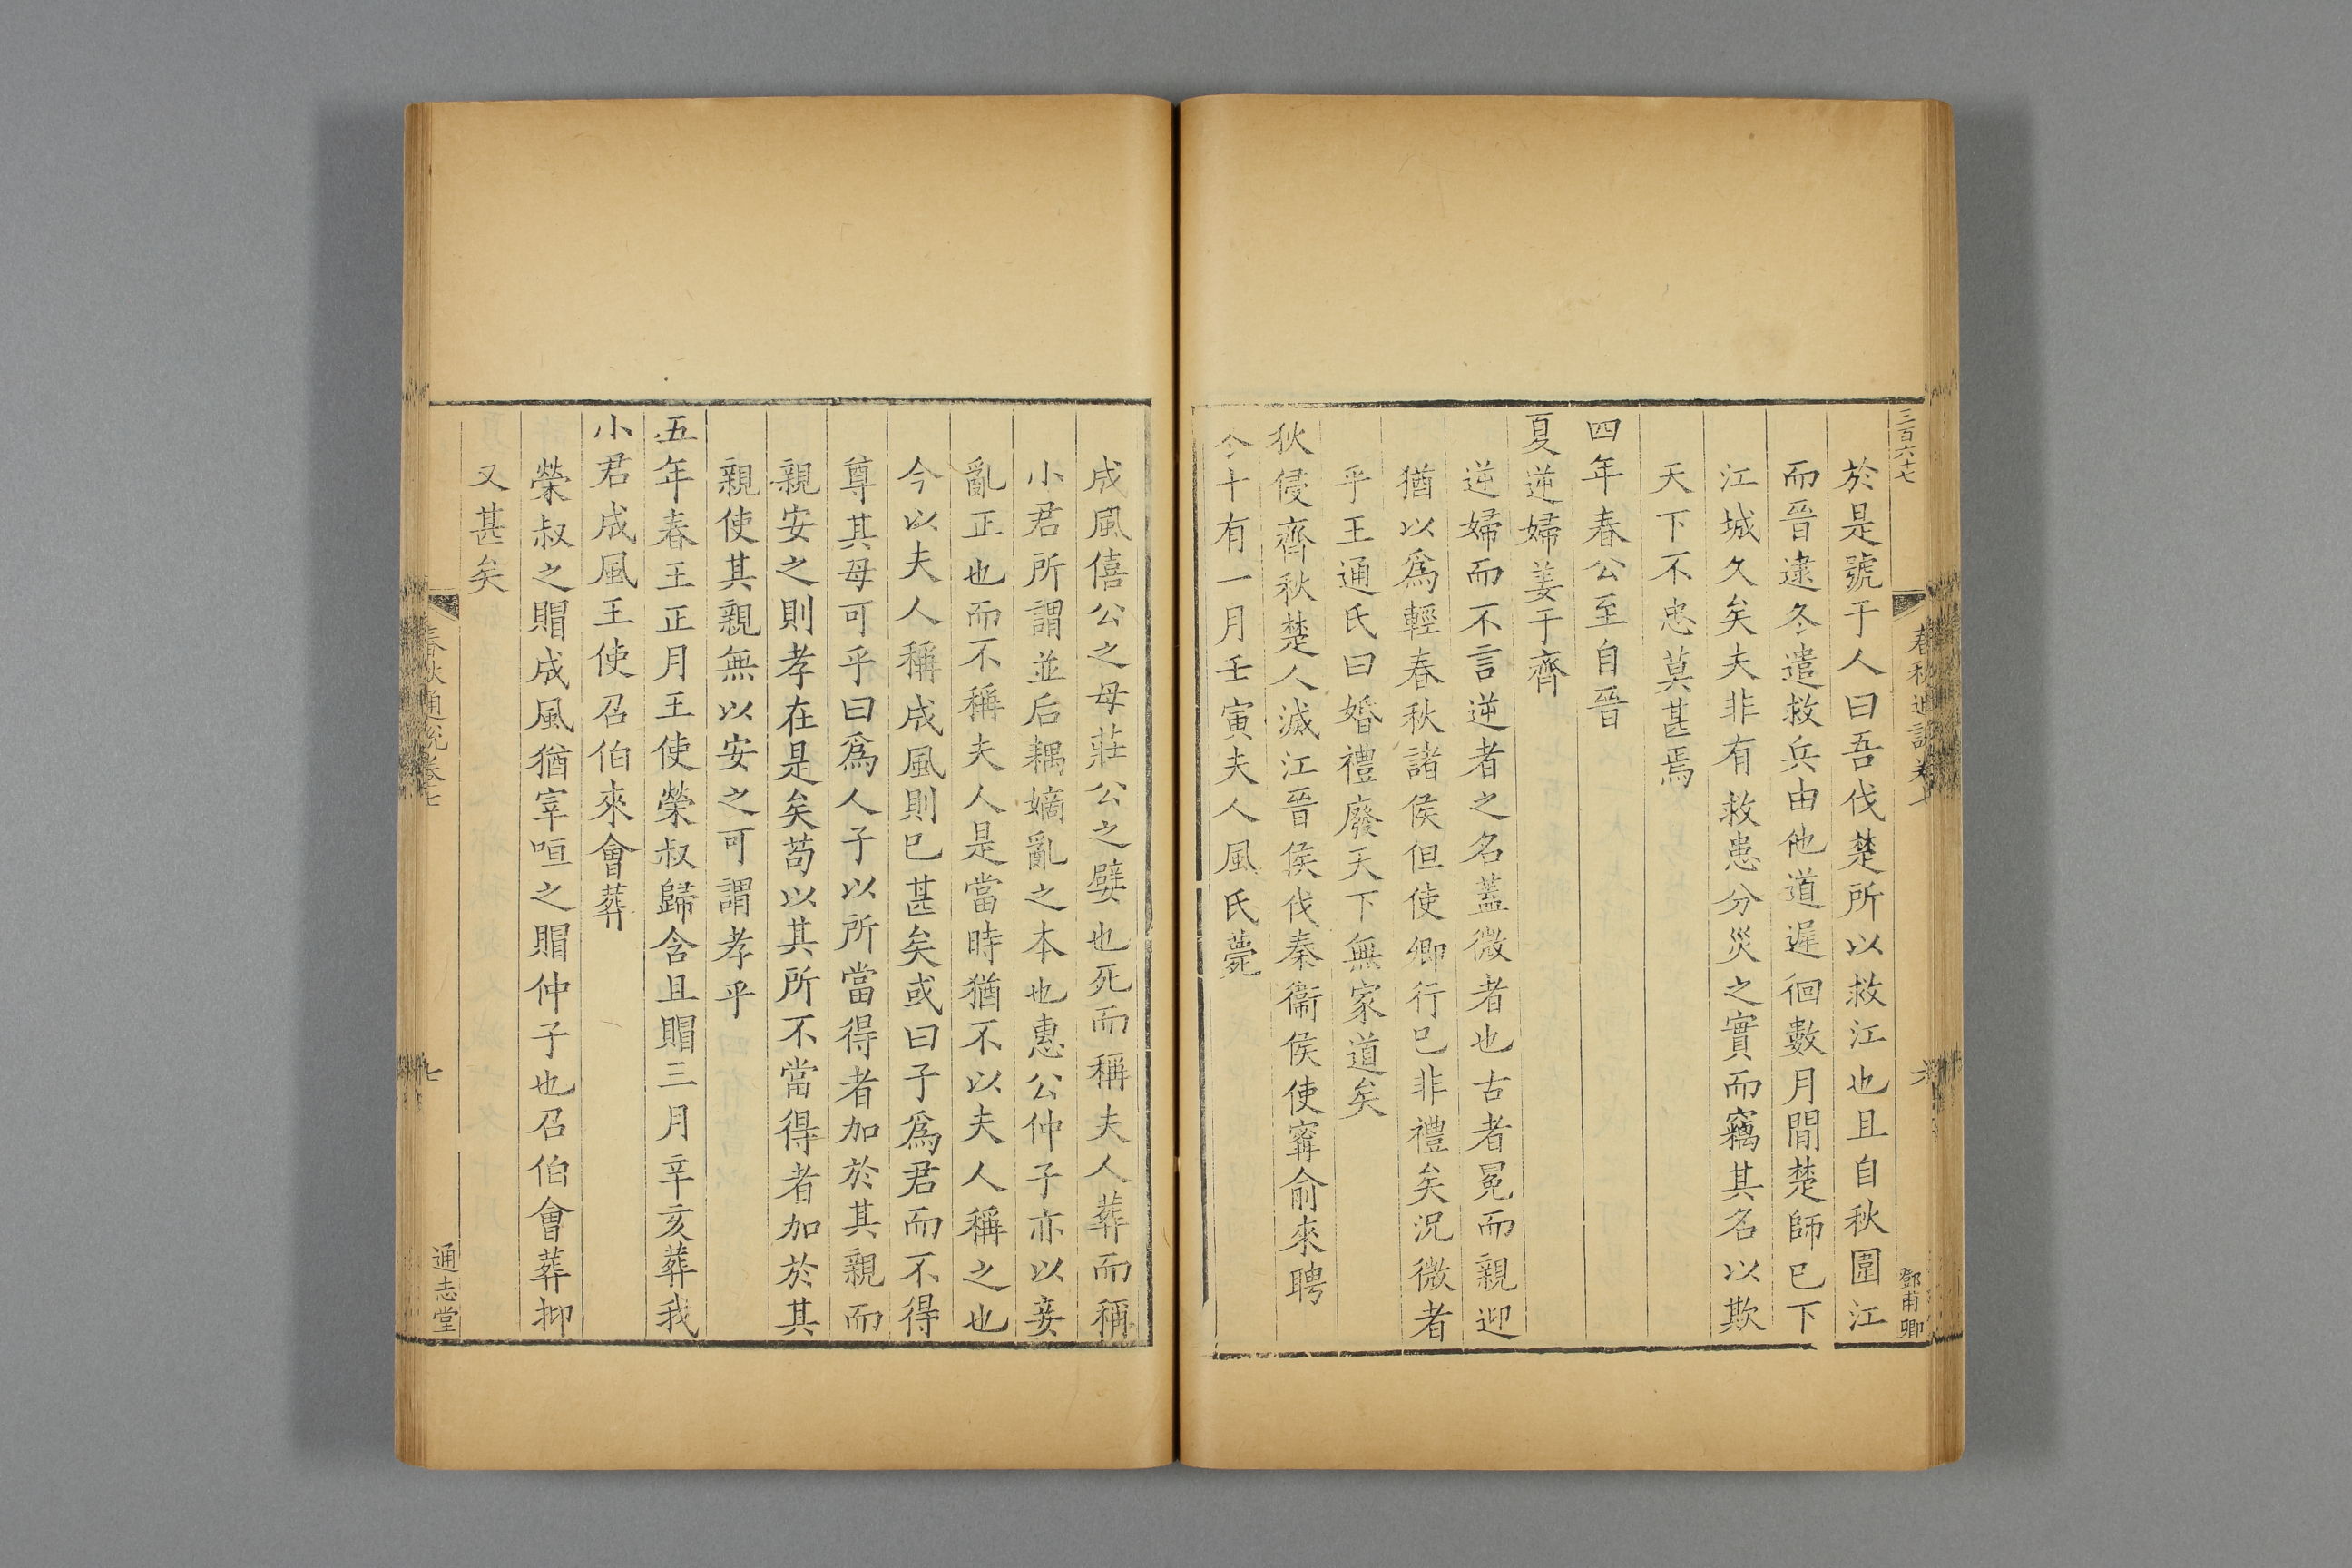 三百六十七
於是號于人曰吾伐楚所以救江也且自秋圍江
而晉逮冬遣救兵由他道遲徊數月間楚師已下
江城久矣夫非有救患分災之實而竊其名以欺
天下不忠莫甚焉
四年春公至自晉
夏逆婦姜于齊
逆婦而不言逆者之名蓋微者也古者冕而親迎
猶以爲輕春秋諸侯但使卿行已非禮矣況微者
乎王通氏曰婚禮廢天下無家道矣
狄侵齊秋楚人滅江晉侯伐秦衞侯使甯俞來聘
冬十有一月壬寅夫人風氏薨
鄧甫卿
成風僖公之母莊公之嬖也死而稱夫人葬而稱
小君所謂並后耦嫡亂之本也惠公仲子亦以妾
亂正也而不稱夫人是當時猶不以夫人稱之也
今以夫人稱成風則已甚矣或曰子爲君而不得
尊其母可乎曰爲人子以所當得者加於其親而
親安之則孝在是矣苟以其所不當得者加於其
親使其親無以安之可謂孝乎
五年春王正月王使榮叔歸含且賵三月辛亥葬我
小君成風王使召伯來會葬
榮叔之賵成風猶宰咺之賵仲子也召伯會葬抑
又甚矣
春秋通說卷七
七
通志堂